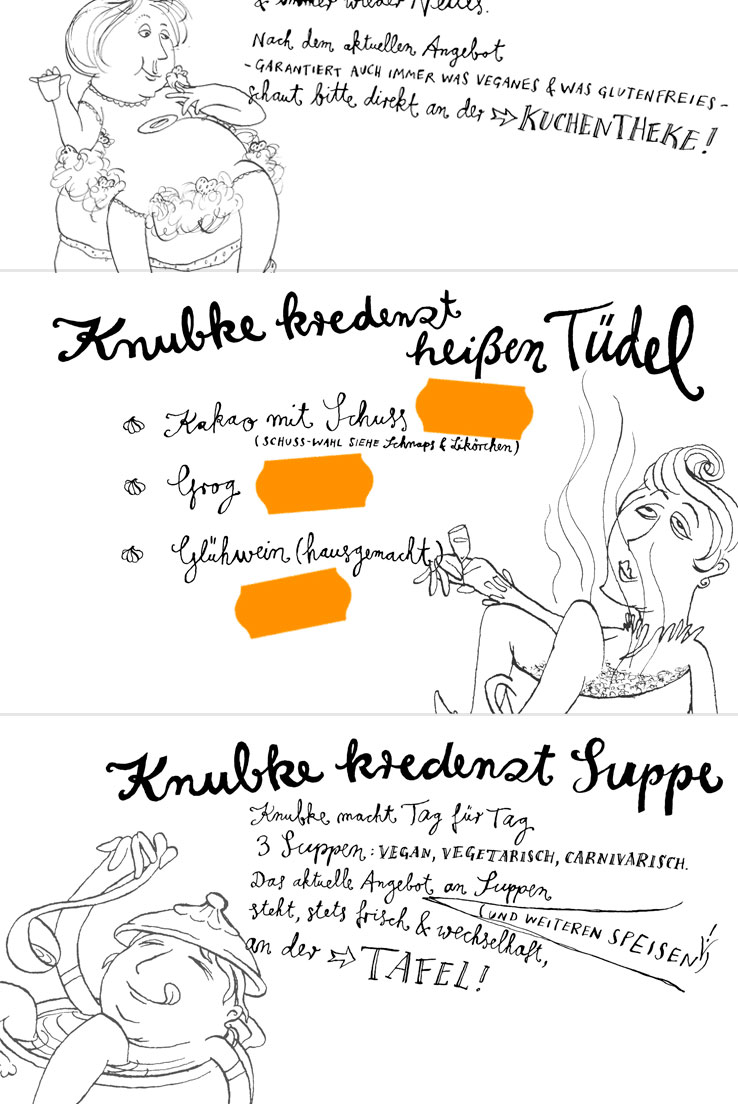 & immer wieder Neues.
Nach dem aktuellen Angebot
- GARANTIERT AUCH IMMER WAS VEGANES & WAS GLUTENFREIES -
schaut bitte direkt an der ⇨ KUCHENTHEKE!
Knubke kredenzt
heißen Tüdel
Kakao mit Schuss
(SCHUSS-WAHL SIEHE Schnaps & Likörchen)
Grog
Glühwein (hausgemacht)
Knubke kredenzt Suppe
Knubke macht Tag für Tag
3 Suppen: VEGAN, VEGETARISCH, CARNIVARISCH.
Das aktuelle Angebot an Suppen
(UND WEITEREN SPEISEN!)
steht, stets frisch & wechselhaft,
an der ⇨ TAFEL!